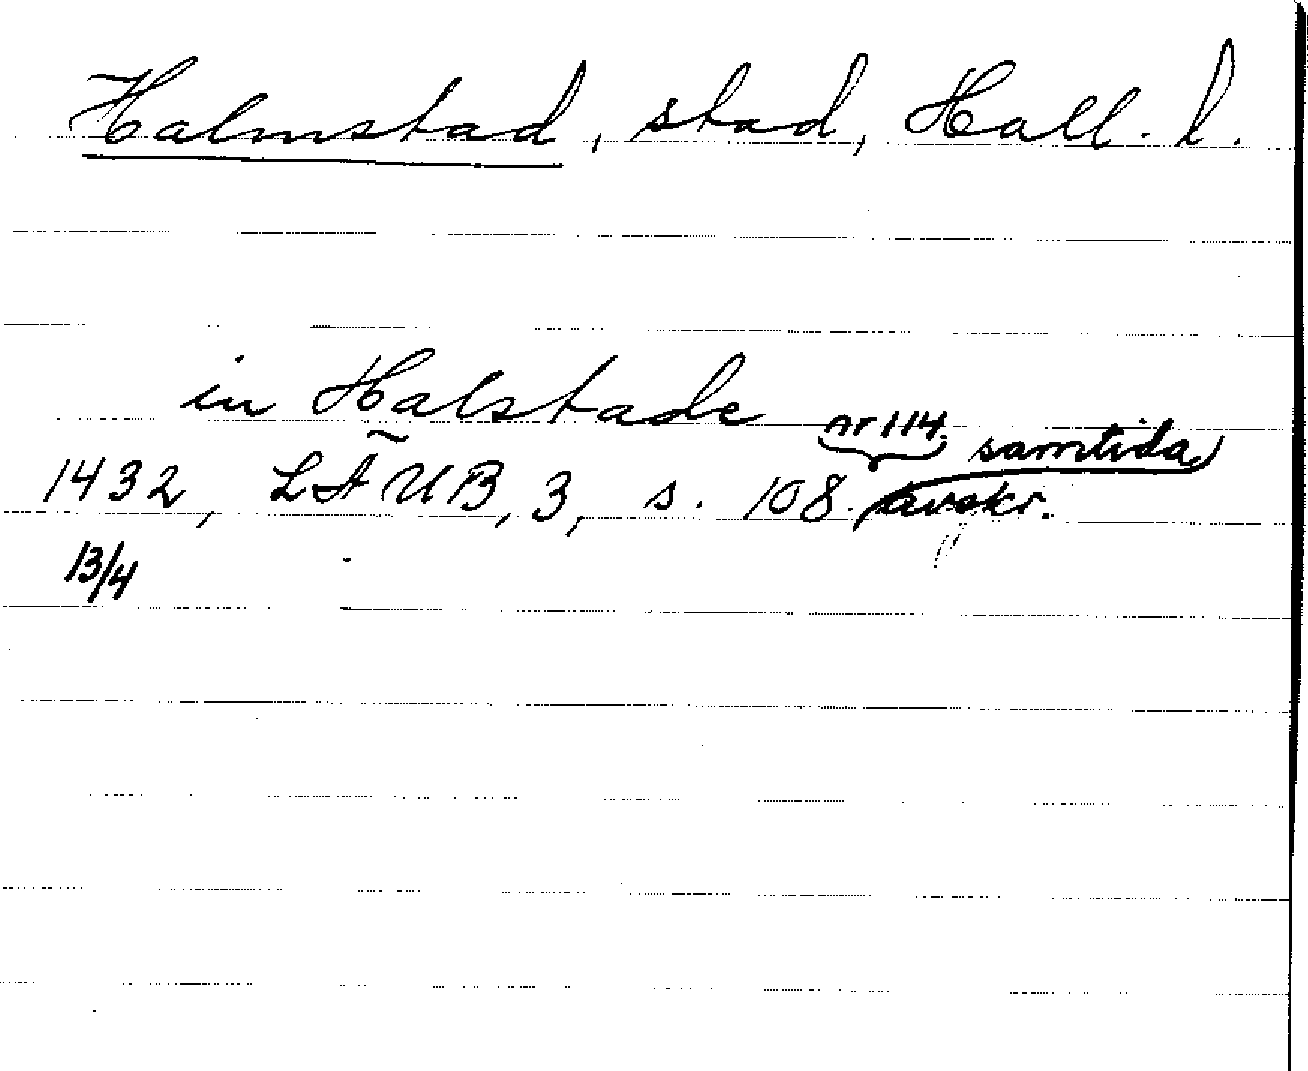 Halmstad, stad, Hall. l.
in Halstade
nr 114. samtida
1432, LÄUB, 3, s. 108. avskr.
13/4